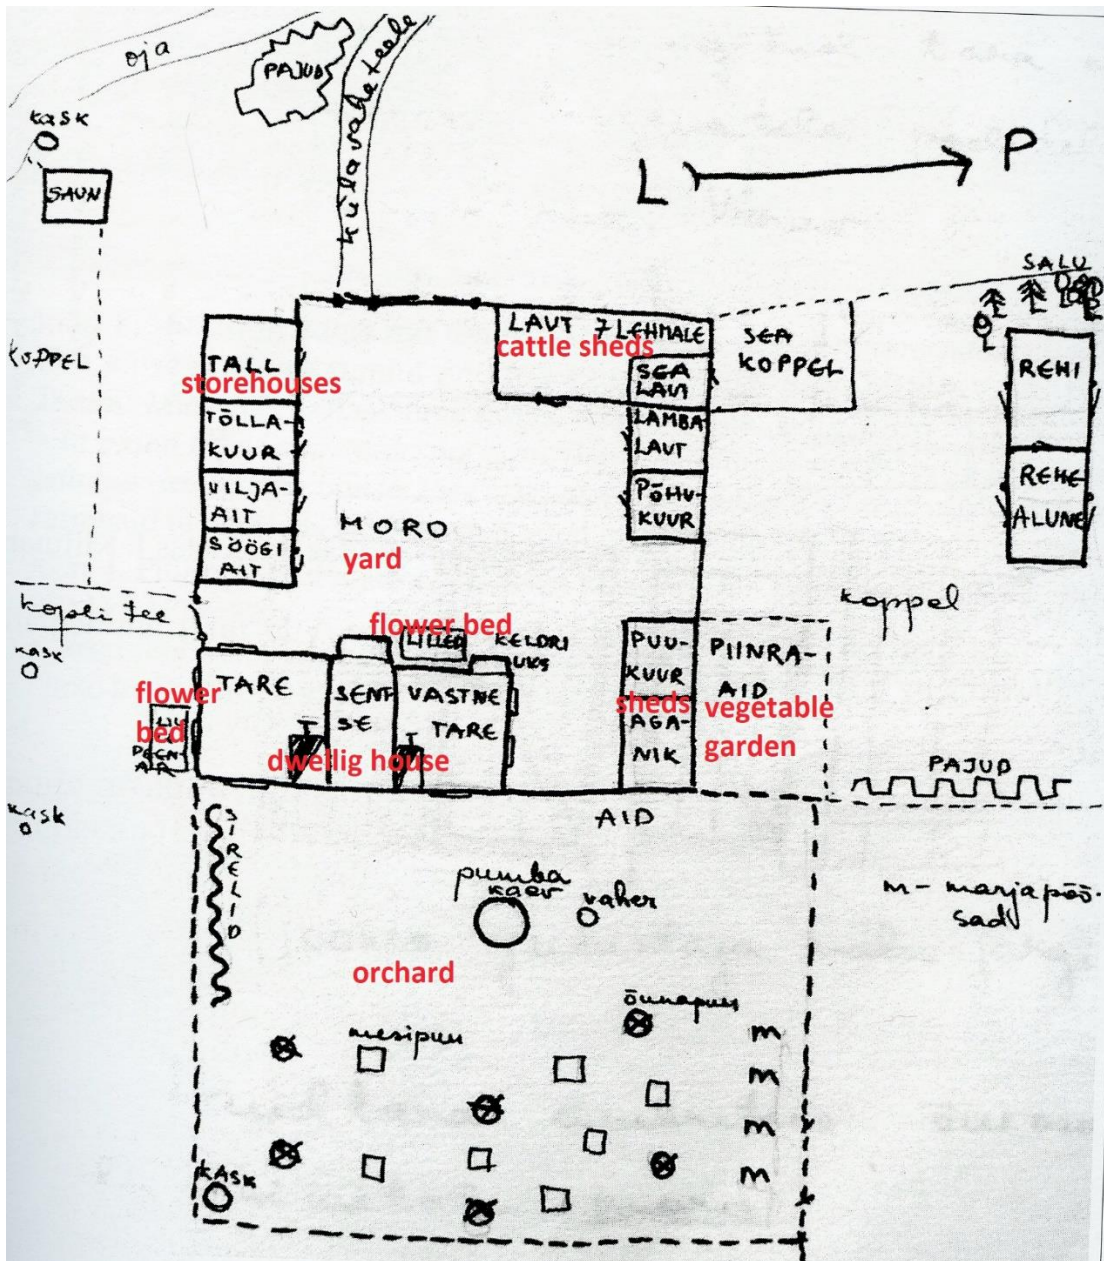 oja
PAJUD
külavaheteele
kask
SAUN
L
P
SALU
KOPPEL
TALL
storehouses
TÕLLA-
KUUR
VILJA-
AIT
SÖÖGI
AIT
LAUT 7 LEHMALE
cattle sheds
SEA
LAUT
LAMBA
LAUT
PÕHU-
KUUR
SEA
KOPPEL
REHI
REHE
ALUNE
MORO
yard
kopli tee
koppel
kask
flower bed
LILLED
KELDRI
UKS
TARE
SENT
SE
VASTNE
TARE
dwellig house
flower
bed
PUU-
KUUR
sheds
AGA-
NIK
PIINRA-
AID
vegetable
garden
PAJUD
kask
AID
SIRELID
pumba
kaev
vaher
m- marjapõõ-
sad
orchard
mesipuu
õunapuu
m
m
m
m
KASK